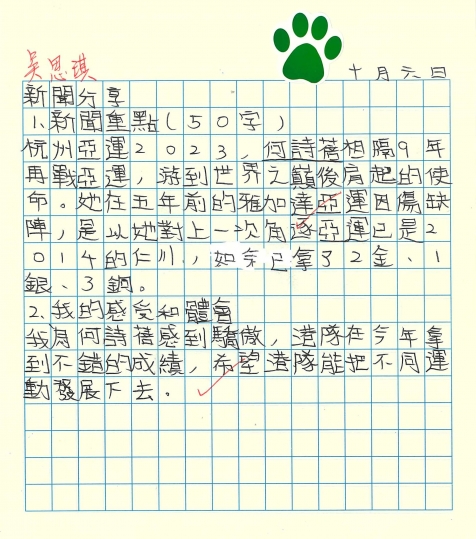 吳恩琪
十月六日
新聞分享
1.新聞重點(50字)
杭州亞運2023,何詩蓓相隔9年
再戰亞運,游到世界之巔後肩起的使
命。她在五年前的雅加達亞運因傷缺
陣,是以她對上一次角逐亞運已是2
014的仁川,如今已拿了2金、1
銀、3銅。
2.我的感受和體會
我為何詩蓓感到驕傲,港隊在今年拿
到不錯的成績,希望港隊能把不同運
動發展下去。